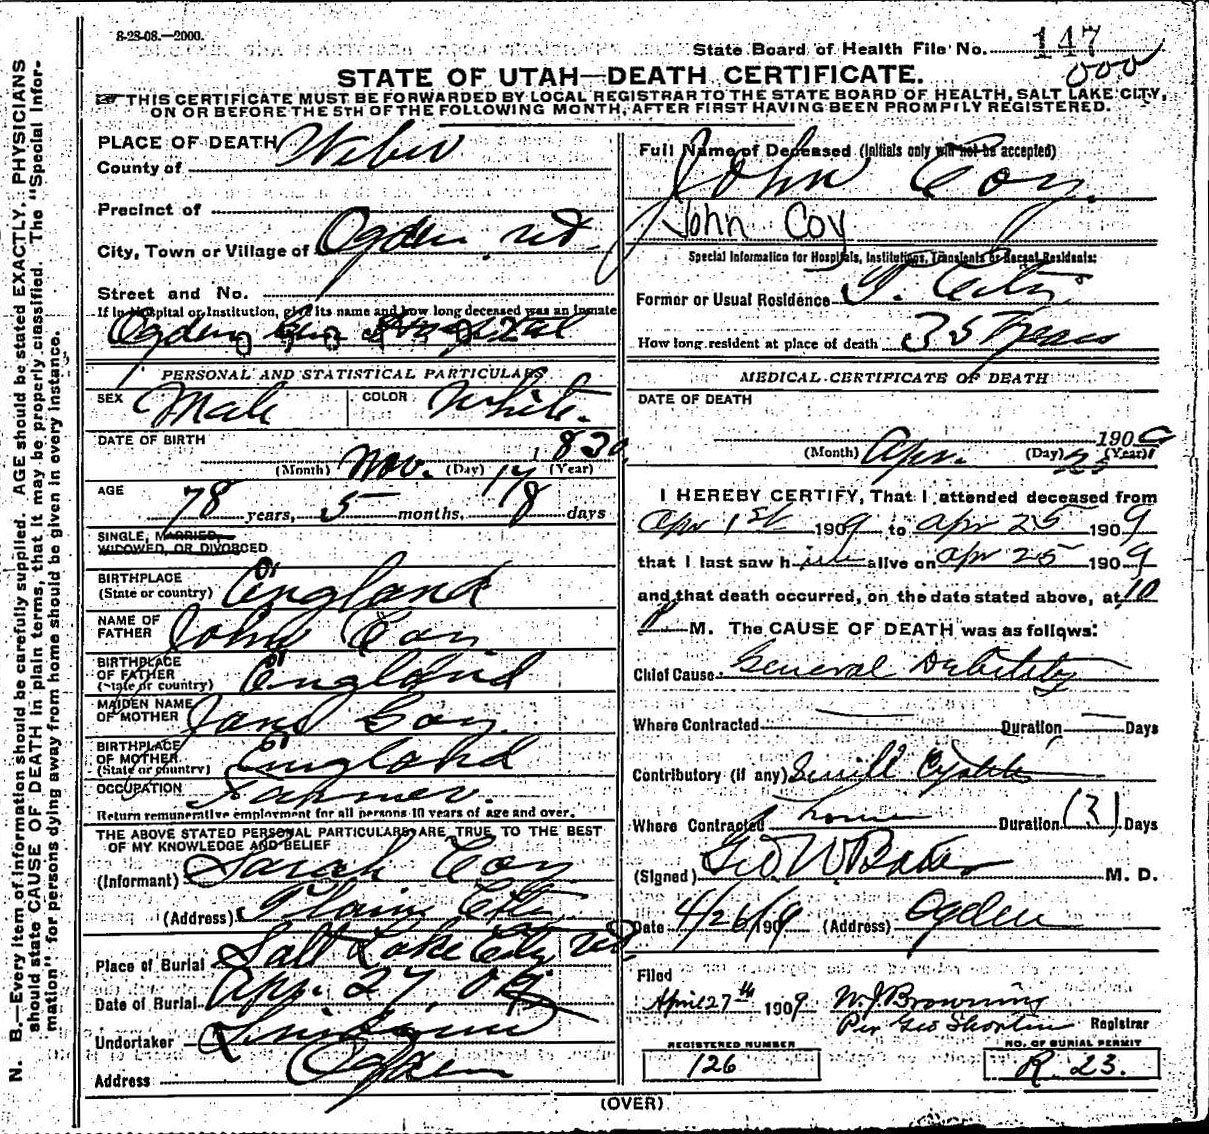 8-28-08.—2000.
State Board of Health File No. 147
000
STATE OF UTAH—DEATH CERTIFICATE.
THIS CERTIFICATE MUST BE FORWARDED BY LOCAL REGISTRAR TO THE STATE BOARD OF HEALTH, SALT LAKE CITY,
ON OR BEFORE THE 5TH OF THE FOLLOWING MONTH, AFTER FIRST HAVING BEEN PROMPTLY REGISTERED.
N. B.—Every item of information should be carefully supplied. AGE should be stated EXACTLY. PHYSICIANS
should state CAUSE OF DEATH in plain terms, that it may be properly classified. The "Special Infor-
mation" for persons dying away from home should be given in every instance.
PLACE OF DEATH
County of Weber
Precinct of
City, Town or Village of Ogden
Street and No.
If in Hospital or Institution, give its name and how long deceased was an inmate
Ogden Gen Hospital
PERSONAL AND STATISTICAL PARTICULARS
SEX Male COLOR White
DATE OF BIRTH
(Month) Nov. (Day) 17 1830 (Year)
AGE
78 years, 5 months, 8 days
SINGLE, MARRIED,
WIDOWED, OR DIVORCED
BIRTHPLACE
(State or country) England
NAME OF
FATHER John Coy
BIRTHPLACE
OF FATHER
(State or country) England
MAIDEN NAME
OF MOTHER Jane Coy
BIRTHPLACE
OF MOTHER
(State or country) England
OCCUPATION Farmer.
Return remunerative employment for all persons 10 years of age and over.
THE ABOVE STATED PERSONAL PARTICULARS ARE TRUE TO THE BEST
OF MY KNOWLEDGE AND BELIEF
(Informant) Sarah Coy
(Address) Plain City
Place of Burial Salt Lake City
Date of Burial Apr. 27, 09
Undertaker
Address Ogden
Full Name of Deceased (Initials only will not be accepted)
John Coy.
John Coy
Special Information for Hospitals, Institutions, Transients or Recent Residents:
Former or Usual Residence P. City
How long resident at place of death 35 Years
MEDICAL CERTIFICATE OF DEATH
DATE OF DEATH
(Month) Apr. (Day) 25 1909 (Year)
I HEREBY CERTIFY, That I attended deceased from
Apr 1st 1909 to Apr 25 1909
that I last saw him alive on Apr 25 1909
and that death occurred, on the date stated above, at 10
M. The CAUSE OF DEATH was as follows:
Chief Cause General Debility
Where Contracted Duration Days
Contributory (if any) Senile Cystitis
Where Contracted home Duration (?) Days
(Signed) Geo. W Baker M. D.
Date 4/26/1909 (Address) Ogden
Filed
April 27th 1909 W. J. Browning
Per Geo Shorten Registrar
REGISTERED NUMBER
126
NO. OF BURIAL PERMIT
R. 23.
(OVER)